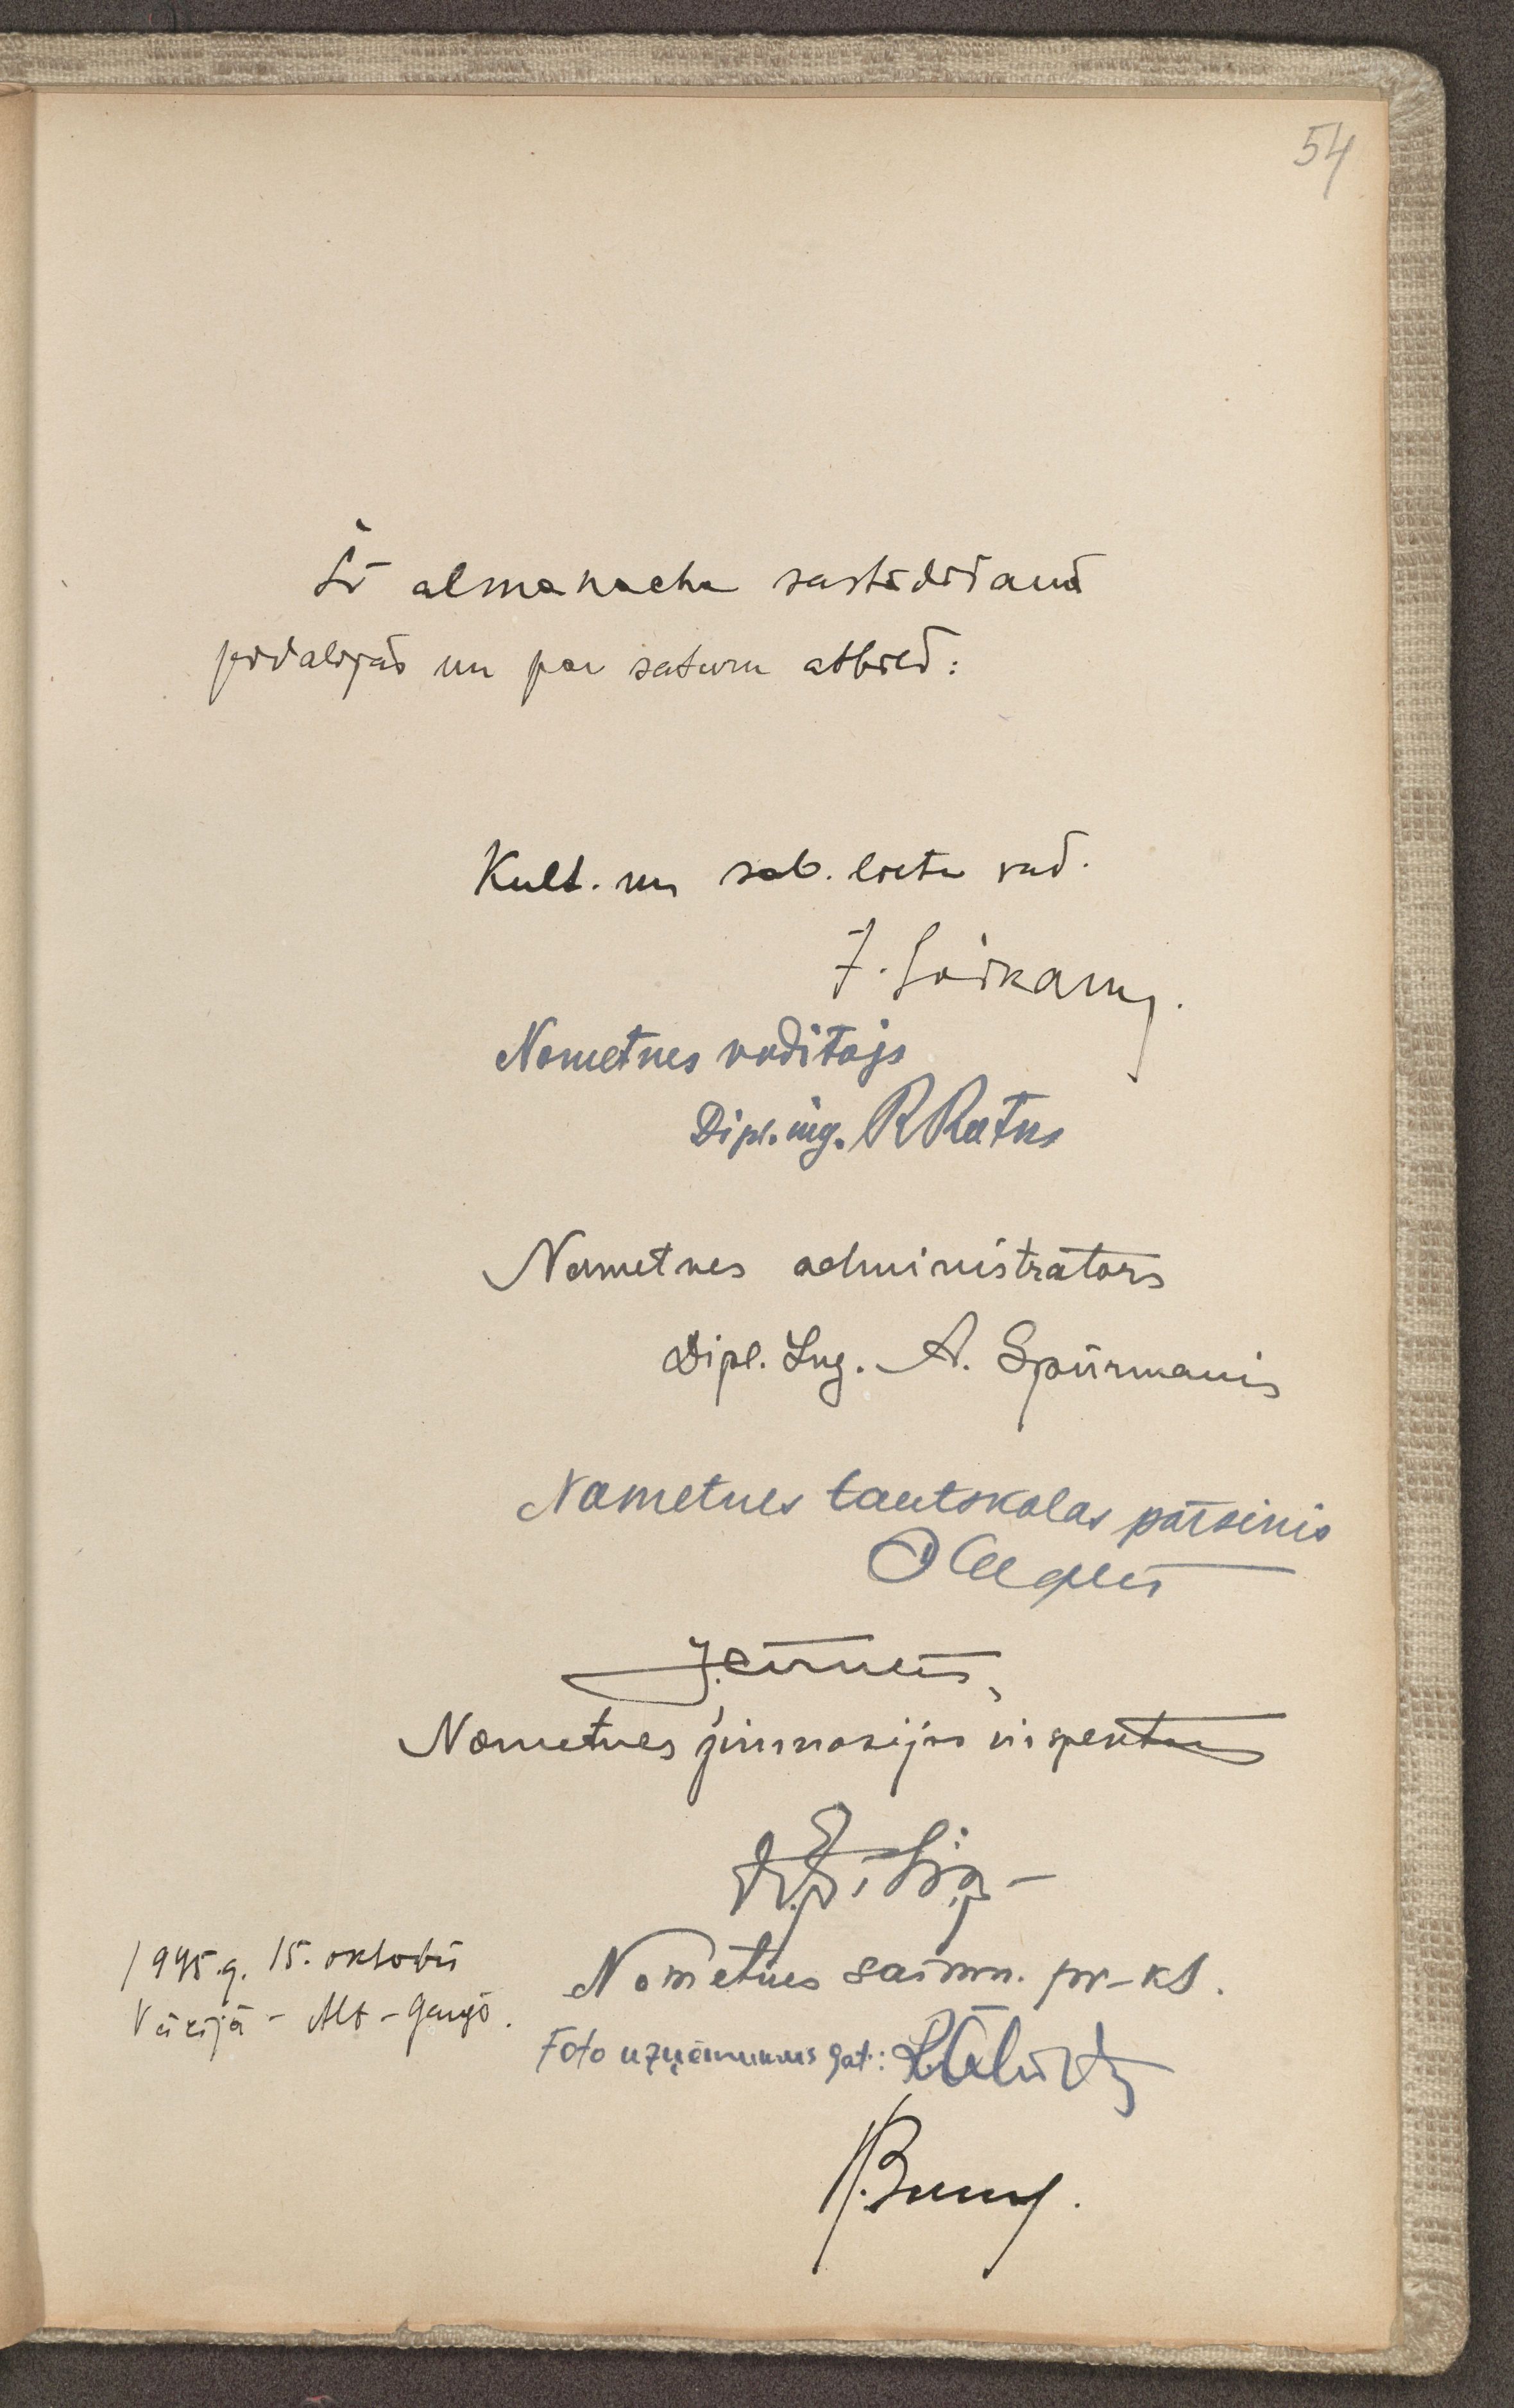 54
Šī almanacha sastādīšanā
pidalijās un par saturu atbild:
Kult. un sab. lietu vad.
J. Soikans.
Nometnes vadītājs
Dipl. ing. R Ratus
Nometnes administrātors
Dipl. Ing. A. Spūrmanis
Nometnes tautskolas pārzinis
Nometnes ģimnazijas inspektors
Nometnes saimn. pr-ks.
1945.g. 15. oktobrī
Vācijā - Alt-Garģē.
Foto uzņēmumus gat.: